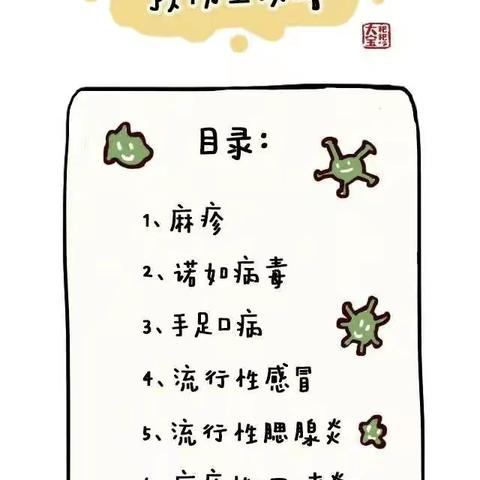 目录：
1、麻疹
2、诺如病毒
3、手足口病
4、流行性感冒
5、流行性腮腺炎